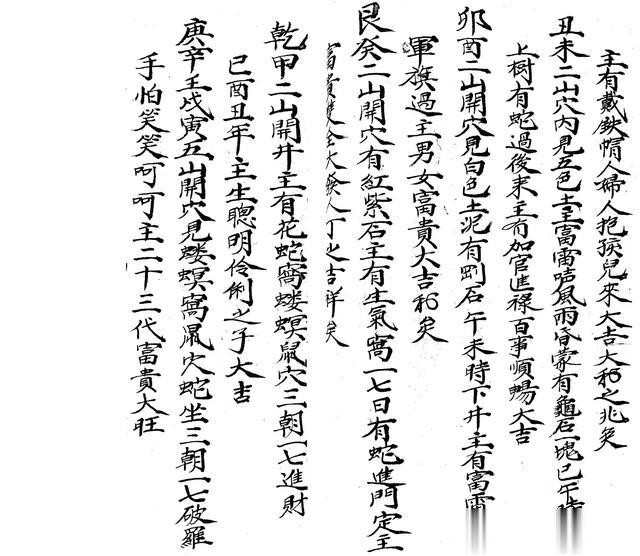 主有戴鉄帽人婦人抱孩兒來大吉大利之兆矣
丑未二山穴內見五色土主富雷唁風雨昏蒙有龜石一塊巳午時
上樹有蛇過後來主有加官進祿百事順暢大吉
卯酉二山開穴見白色土泥有剛石午未時下井主有富雷
軍旗過主男女富貴大吉利矣
艮癸二山開穴有紅紫石主有生氣窩一七日有蛇進門定主
富貴雙全大發人丁之吉祥矣
乾甲二山開井主有花蛇窩螻螟鼠穴三朝一七進財
巳酉丑年主生聰明伶俐之子大吉
庚辛壬戌寅五山開穴見螻螟窩鼠穴蛇坐三朝一七破羅
手怕笑笑呵呵主二十三代富貴大旺